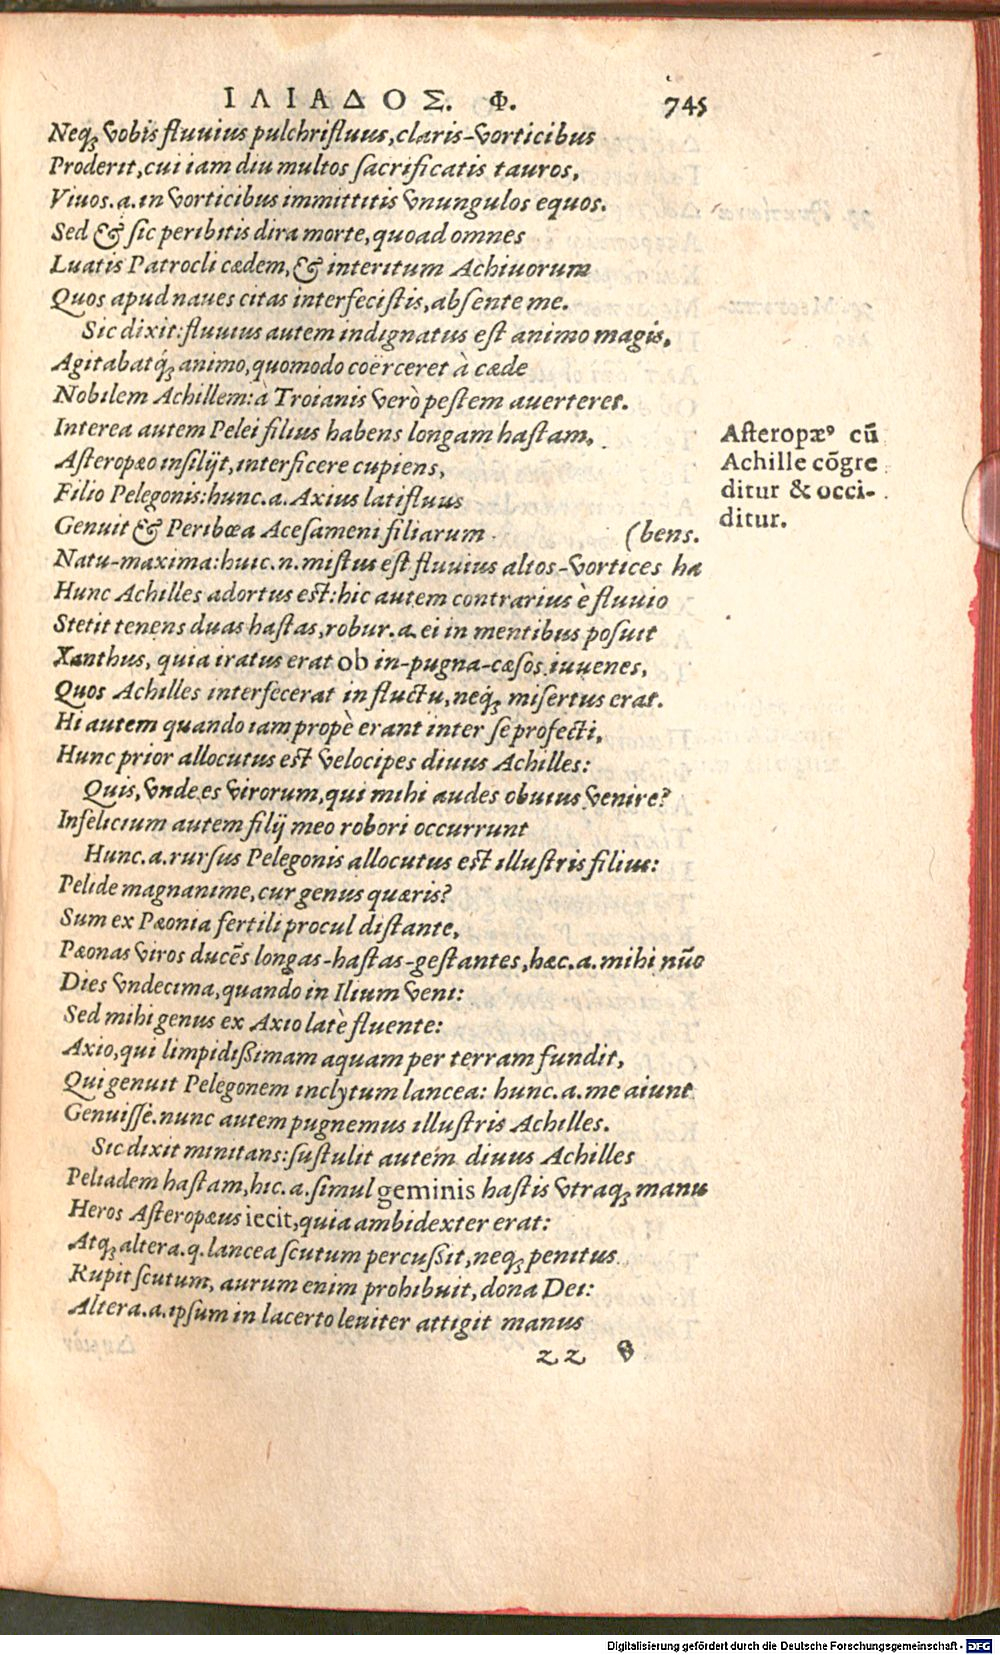 ΙΛΙΑΔΟΣ. Φ. 745
Neq; vobis fluuius pulchrifluus, claris-vorticibus
Proderit, cui iam diu multos sacrificatis tauros,
Viuos.a.in vorticibus immittitis vnungulos equos.
Sed & sic peribitis dira morte, quoad omnes
Luatis Patrocli cædem, & interitum Achiuorum
Quos apud naues citas interfecistis, absente me.
Sic dixit: fluuius autem indignatus est animo magis,
Agitabatq́; animo, quomodo coërceret à cæde
Nobilem Achillem: à Troianis verò pestem auerteret.
Interea autem Pelei filius habens longam hastam,
Asteropæo insilijt, interficere cupiens,
Filio Pelegonis: hunc.a.Axius latifluus
Genuit & Peribœa Acesameni filiarum (bens.
Natu-maxima: huic.n.mistus est fluuius altos-vortices ha
Hunc Achilles adortus est: hic autem contrarius è fluuio
Stetit tenens duas hastas, robur.a.ei in mentibus posuit
Xanthus, quia iratus erat ob in-pugna-cæsos iuuenes,
Quos Achilles interfecerat in fluctu, neq́; misertus erat.
Hi autem quando iam propè erant inter se profecti,
Hunc prior allocutus est velocipes diuus Achilles:
Quis, vnde es virorum, qui mihi audes obuius venire?
Infelicium autem filij meo robori occurrunt
Hunc.a.rursus Pelegonis allocutus est illustris filius:
Pelide magnanime, cur genus quæris?
Sum ex Pæonia fertili procul distante,
Pæonas viros ducẽs longas-hastas-gestantes, hæc.a.mihi nũc
Dies vndecima, quando in Ilium veni:
Sed mihi genus ex Axio latè fluente:
Axio, qui limpidißimam aquam per terram fundit,
Qui genuit Pelegonem inclytum lancea: hunc.a.me aiunt
Genuisse. nunc autem pugnemus illustris Achilles.
Sic dixit minitans: sustulit autem diuus Achilles
Peliadem hastam, hic.a.simul geminis hastis vtraq; manu
Heros Asteropæus iecit, quia ambidexter erat:
Atq; altera.q.lancea scutum percußit, neq; penitus
Rupit scutum, aurum enim prohibuit, dona Dei:
Altera.a.ipsum in lacerto leuiter attigit manus
zz
Asteropæꝰ cũ
Achille cõgre
ditur & occi-
ditur.
Digitalisierung gefördert durch die Deutsche Forschungsgemeinschaft - DFG